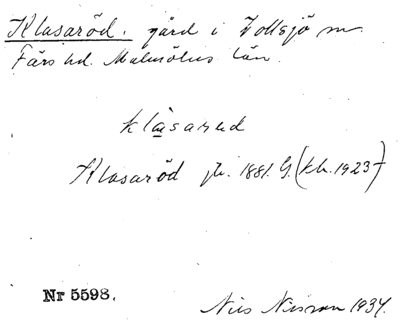 Klasaröd. gård i Vollsjö sn.
Färs hd. Malmöhus län.
klasared
Klasaröd jb. 1881. G. (kb. 1923-)
Nr 5598.
Nils Nilsson 1934.